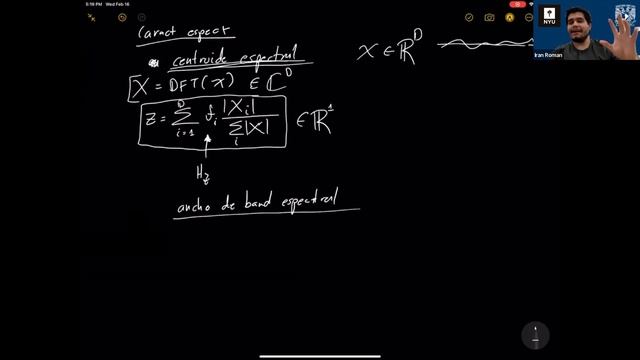 5:16 PM Wed Feb 16
Caract espect
centroide espectral
x ∈ ℝ^D
X = DFT(x) ∈ ℂ^D
z = Σ_{i=1}^{D} f_i |X_i| / Σ_i |X| ∈ ℝ^1
Hz
ancho de band espectral
NYU
Iran Roman